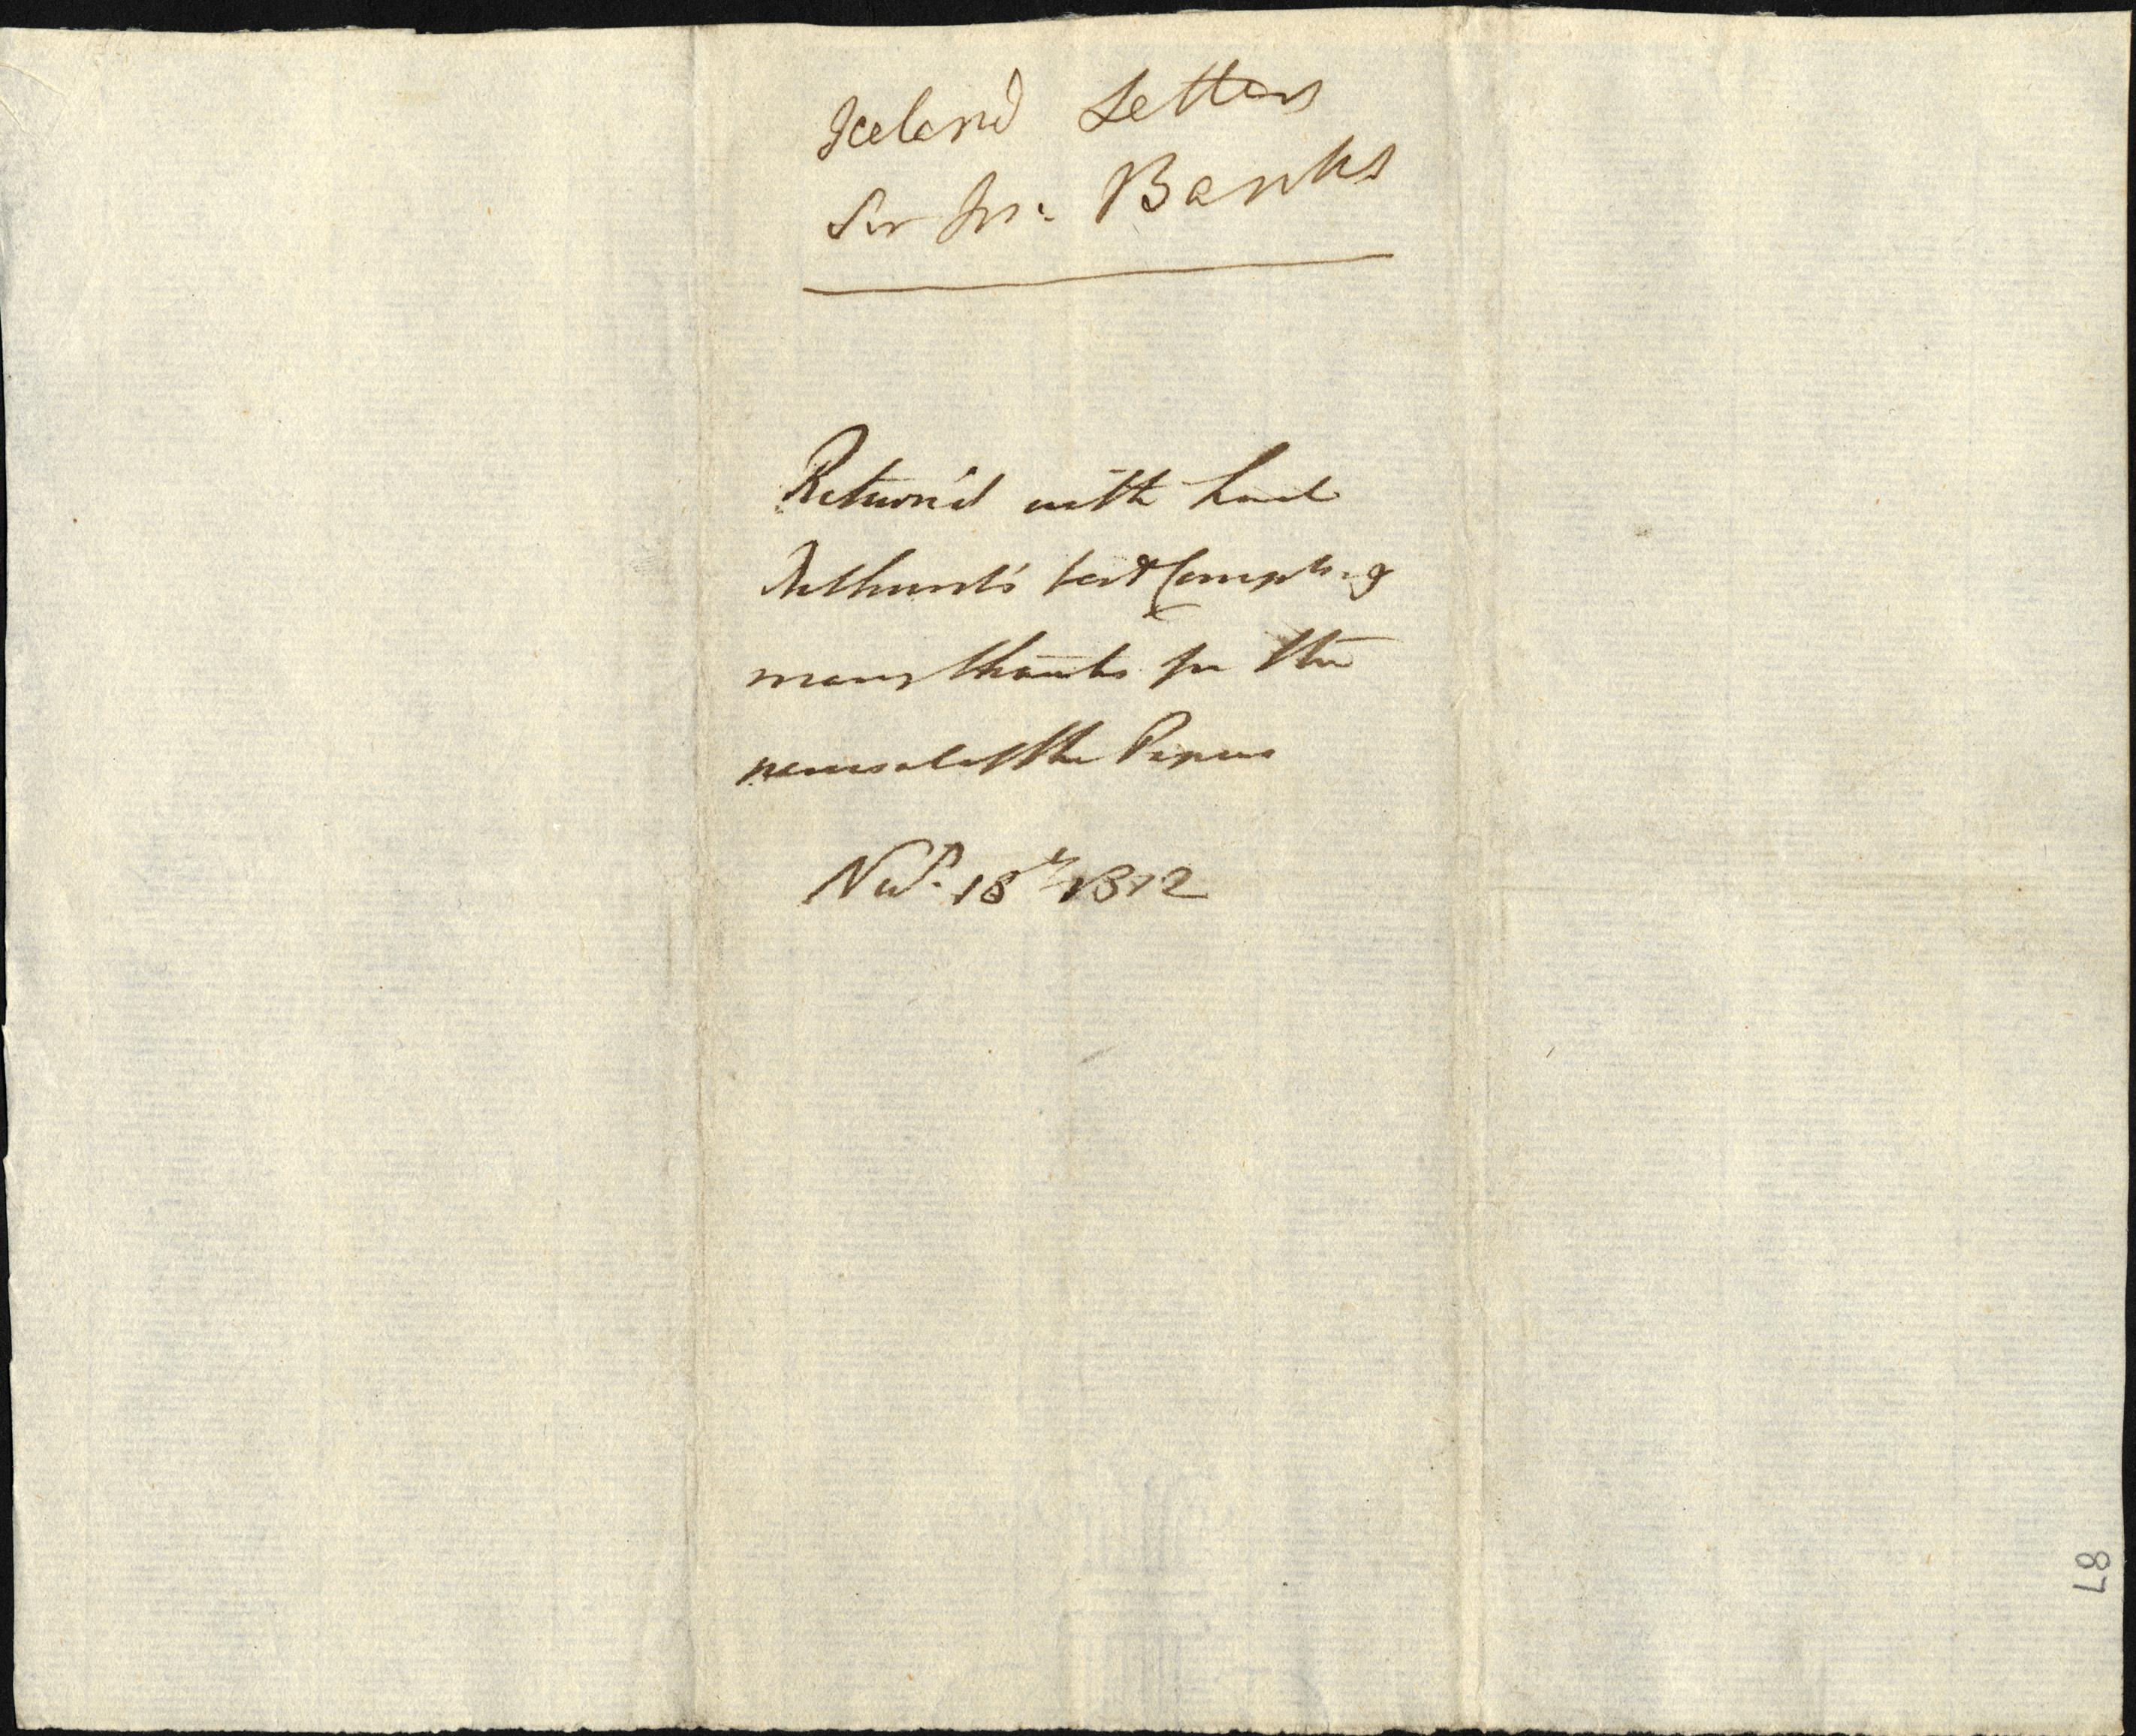 Iceland Letters
Sir Jos: Banks
Return'd with Lord
Bathurst's best Complts. &
many thanks for the
perusal of the Papers
Novr. 18th 1812
87